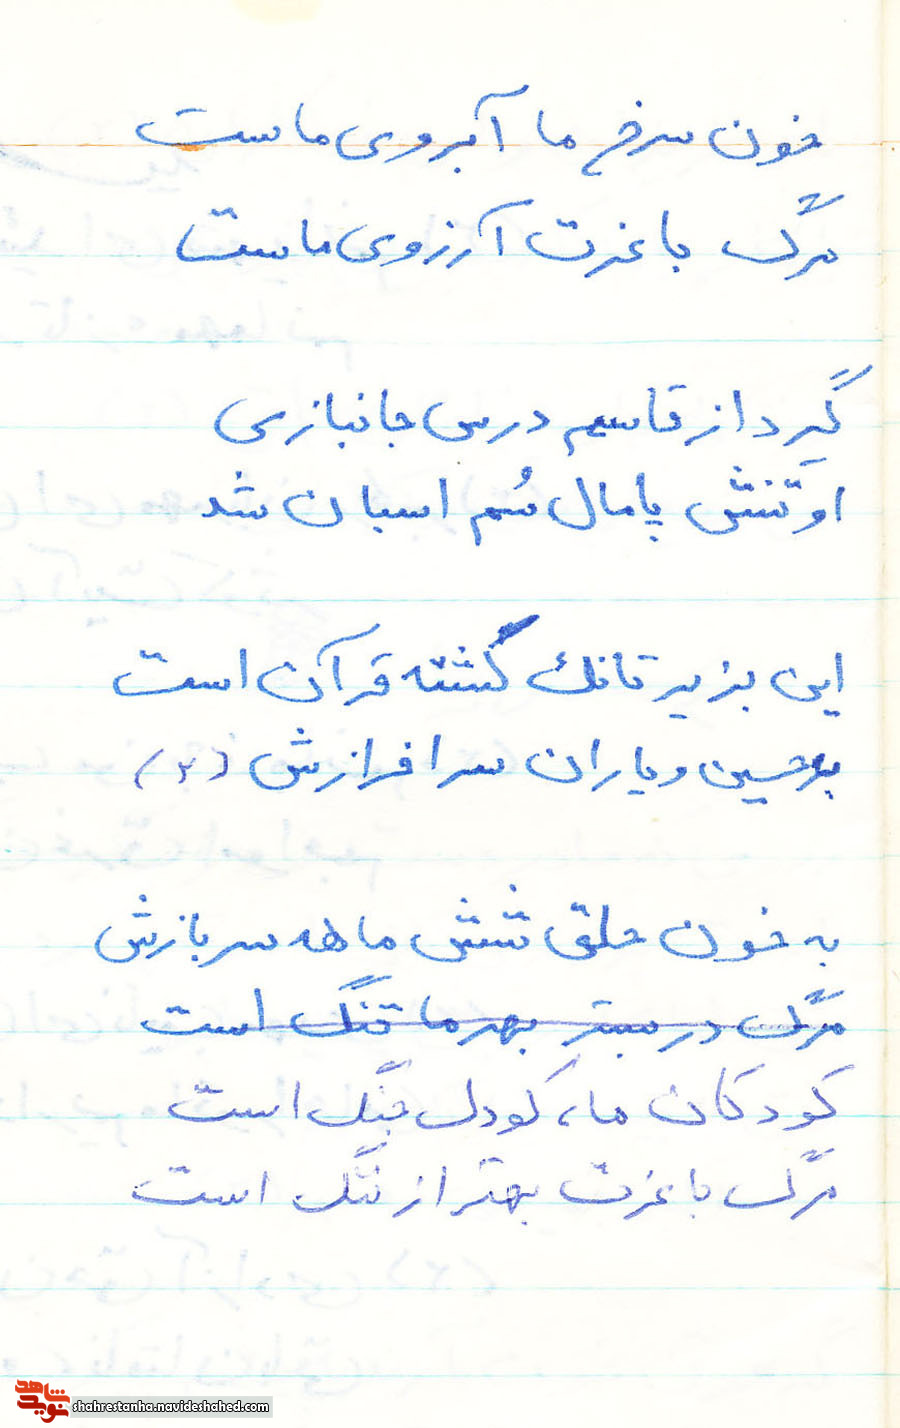 خون سرخ ما آبروی ماست
مرگ با عزت آرزوی ماست
گیرد از قاسم درس جانبازی
او تنش پامال سُم اسبان شد
این یزید تانک کشته قرآن است
بر حسین و یاران سرافرازش (۲)
به خون حلق شش ماهه سربازش
مرگ در بستر بهر ما تنگ است
کودکان ما، کودک جنگ است
مرگ با عزت بهتر از ننگ است
نوید شاهد
shahrestanha.navideshahed.com